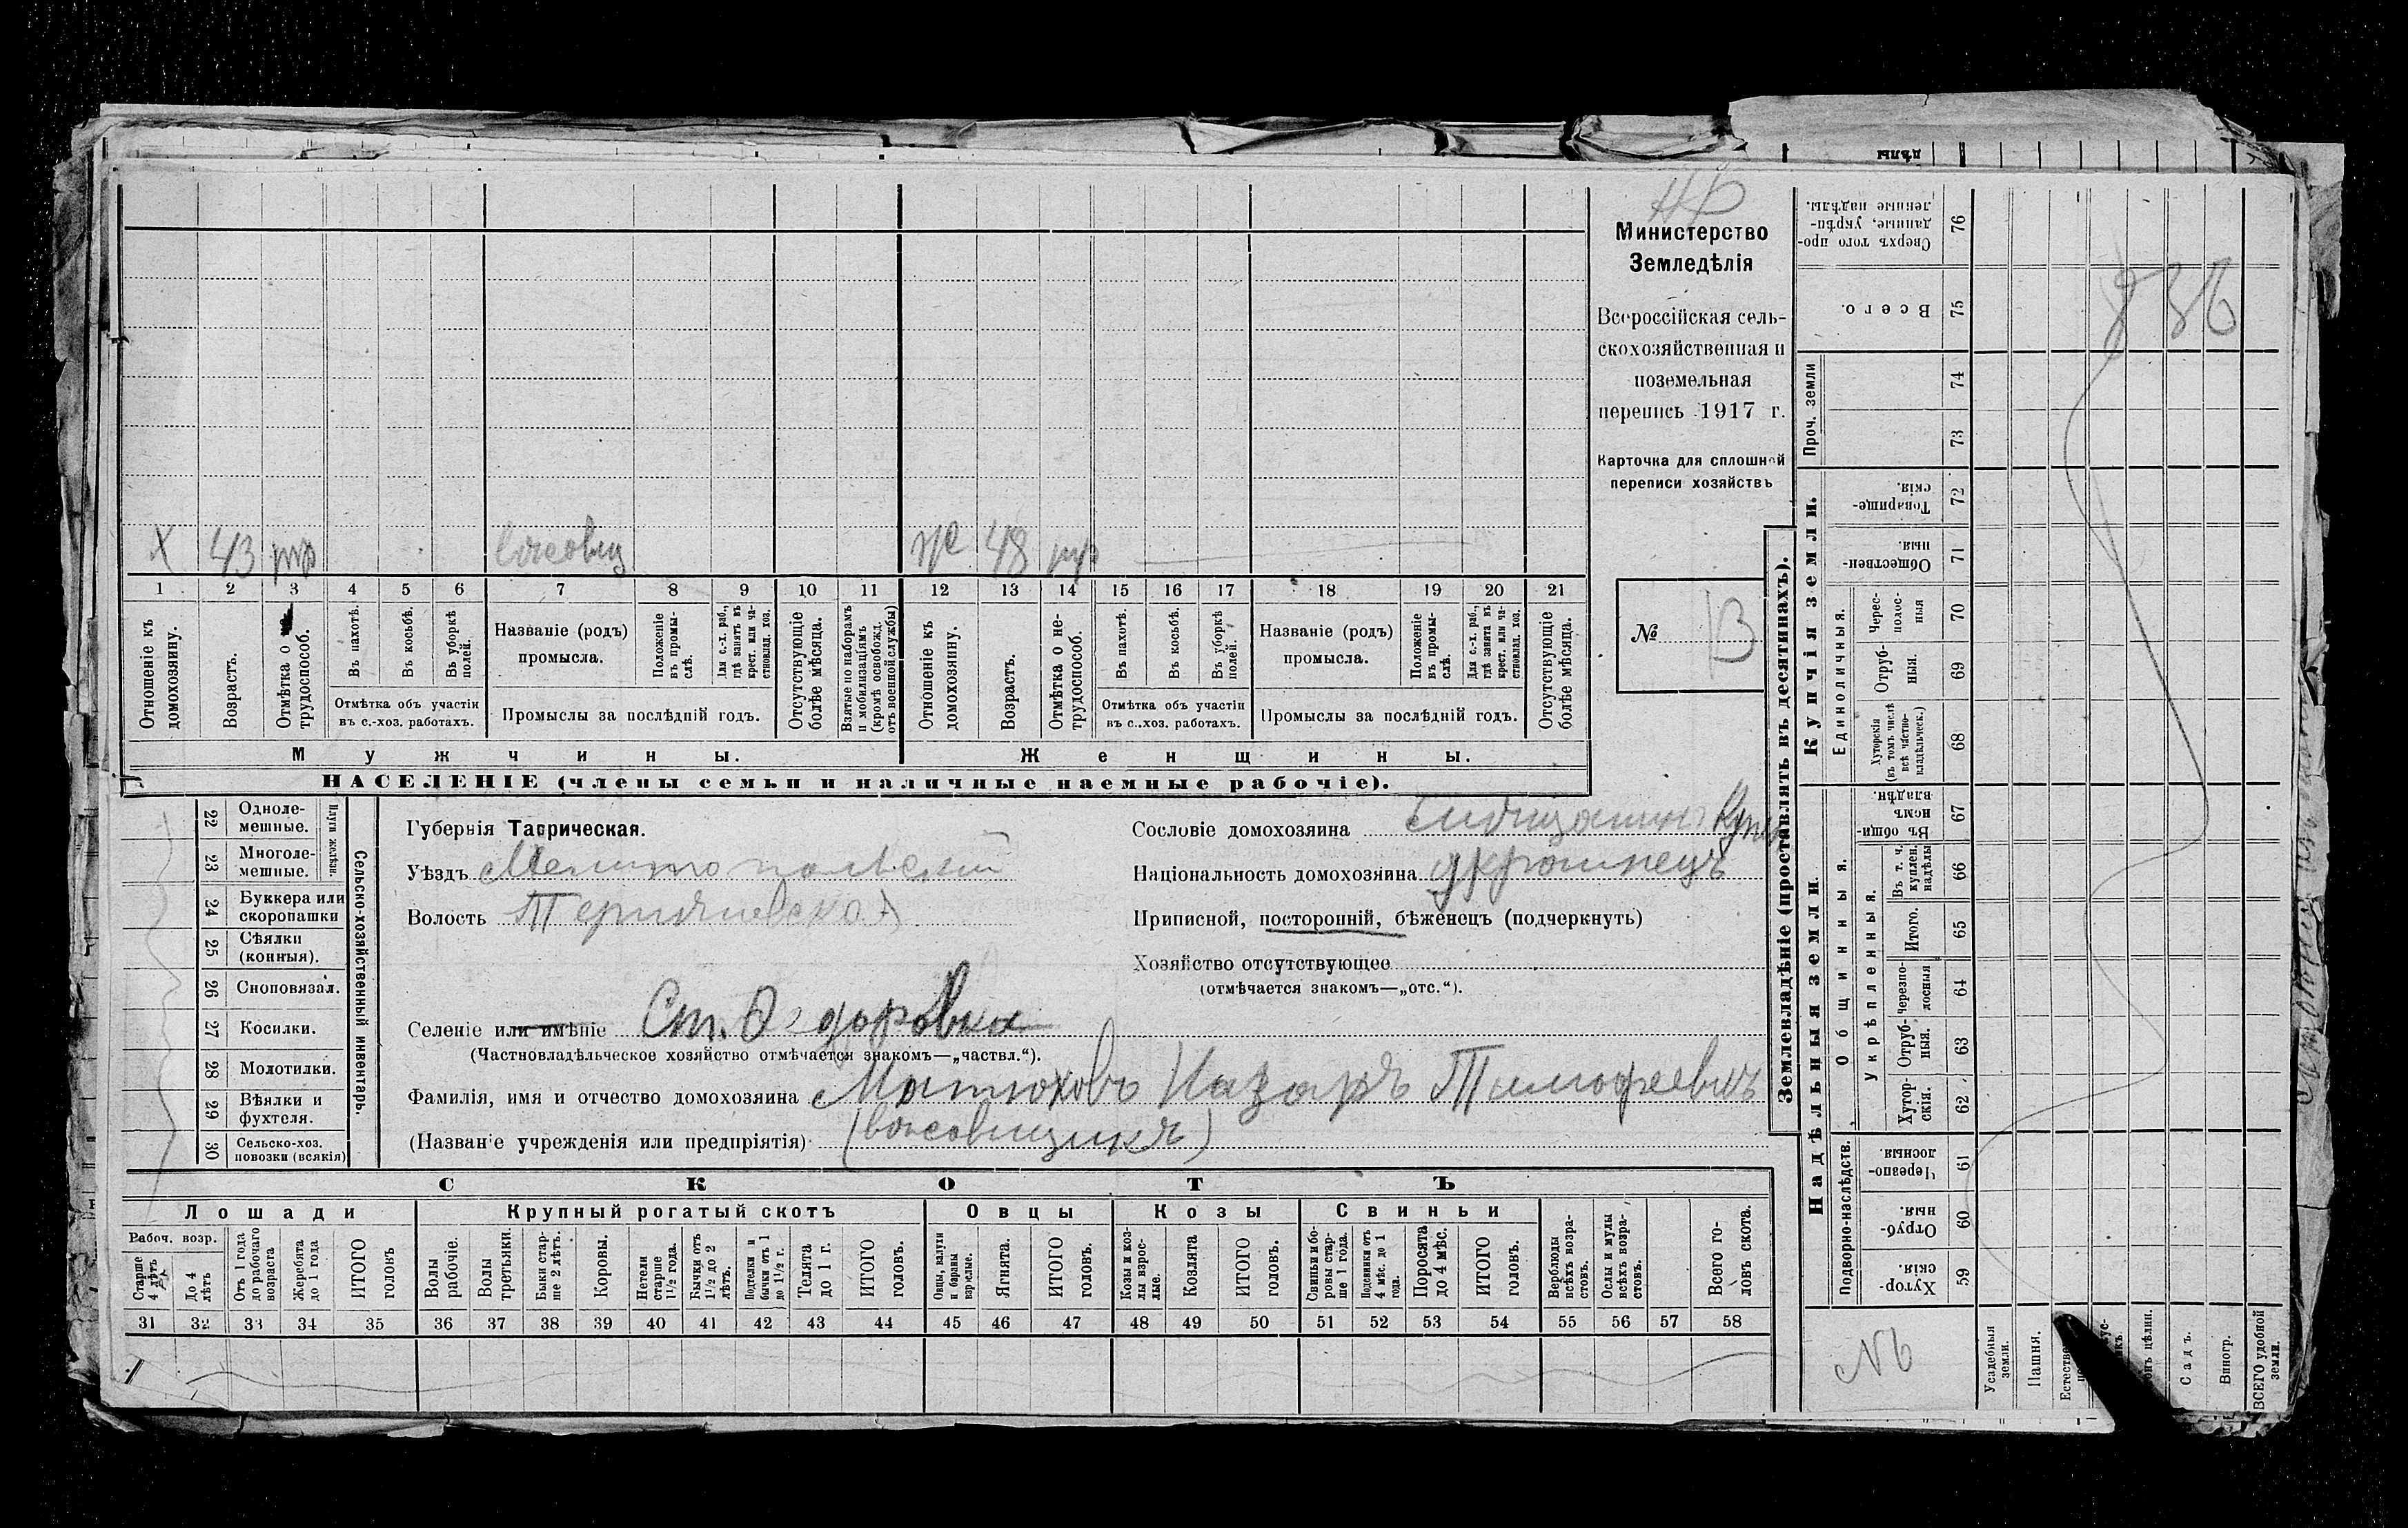 НР
Министерство
Земледѣлія
Всероссійская сель-
скохозяйственная и
поземельная
перепись 1917 г.
Карточка для сплошной
переписи хозяйствъ
№ 13
Х 43 тр
Ж 48 тр
1 2 3 4 5 6 7 8 9 10 11 12 13 14 15 16 17 18 19 20 21
Отношеніе къ домохозяину.
Возрастъ.
Отмѣтка о трудоспособ.
Въ пахотѣ.
Въ косьбѣ.
Въ уборкѣ полей.
Отмѣтка объ участіи
въ с.-хоз. работахъ.
Названіе (родъ)
промысла.
Положеніе въ промы-слѣ.
Для с.-х. раб., гдѣ занятъ въ крест. или ча-стновлад. хоз.
Промыслы за послѣдній годъ.
Отсутствующіе болѣе мѣсяца.
Взятые по наборамъ и мобилизаціямъ (кромѣ освобожд. отъ военной службы)
Отношеніе къ домохозяину.
Возрастъ.
Отмѣтка о не-трудоспособ.
Въ пахотѣ.
Въ косьбѣ.
Въ уборкѣ полей.
Отмѣтка объ участіи
въ с.-хоз. работахъ.
Названіе (родъ)
промысла.
Положеніе въ промы-слѣ.
Для с.-х. раб., гдѣ занята въ крест. или ча-стновлад. хоз.
Промыслы за послѣдній годъ.
Отсутствующіе болѣе мѣсяца.
Мужчины. Женщины.
НАСЕЛЕНІЕ (члены семьи и наличные наемные рабочіе).
22 Одноле-мешные.
23 Многоле-мешные.
Плуги желѣзн.
24 Буккера или скоропашки
25 Сѣялки (конныя).
26 Сноповязал.
27 Косилки.
28 Молотилки.
29 Вѣялки и фухтеля.
30 Сельско-хоз. повозки (всякія)
Сельско-хозяйственный инвентарь.
Губернія Таврическая.
Уѣздъ Мелитопольскій
Волость
Селеніе или имѣніе Ст. Федоровка
(Частновладѣльческое хозяйство отмѣчается знакомъ—„частвл.“).
Фамилія, имя и отчество домохозяина Матюховъ Назаръ Тимофеевичъ
(Названіе учрежденія или предпріятія)
Сословіе домохозяина
Національность домохозяина украинецъ
Приписной, посторонній, бѣженецъ (подчеркнуть)
Хозяйство отсутствующее
(отмѣчается знакомъ—„отс.“).
СКОТЪ
Лошади
Крупный рогатый скотъ
Овцы
Козы
Свиньи
Рабоч. возр.
Старше 4 лѣтъ
До 4 лѣтъ
Отъ 1 года до рабочаго возраста
Жеребята до 1 года
ИТОГО головъ
Волы рабочіе.
Волы третьяки.
Быки стар-ше 2 лѣтъ.
Коровы.
Нетели старше 1½ года.
Бычки отъ 1½ до 2 лѣтъ.
Подтелки и бычки отъ 1 до 1½ г.
Телята до 1 г.
ИТОГО головъ.
Овцы, валухи и бараны взрослые.
Ягнята.
ИТОГО головъ.
Козы и коз-лы взрос-лые.
Козлята
ИТОГО головъ.
Свиньи и бо-ровы стар-ше 1 года.
Подсвинки отъ 4 мѣс. до 1 года.
Поросята до 4 мѣс.
ИТОГО головъ.
Верблюды всѣхъ возра-стовъ.
Ослы и мулы всѣхъ возра-стовъ.
Всего го-ловъ скота.
31 32 33 34 35 36 37 38 39 40 41 42 43 44 45 46 47 48 49 50 51 52 53 54 55 56 57 58
Землевладѣніе (проставлять въ десятинахъ).
Купчія земли.
Надѣльныя земли.
Сверхъ того про-данные, укрѣп-ленные надѣлы. 76
Всего. 75
Проч. земли 74
73
Товарище-скія. 72
Обществен-ныя. 71
Единоличныя.
Черес-полос-ныя 70
Отруб-ныя. 69
Хуторскія (въ томъ числѣ всѣ частно-владѣльческ.) 68
Общинныя.
Въ общи-номъ владѣн. 67
Укрѣпленныя.
Въ т. ч. куплен. надѣлы 66
Итого. 65
черезпо-лосныя 64
Отруб-ныя. 63
Хутор-скія. 62
Подворно-наслѣдств.
Черезпо-лосныя. 61
Отруб-ныя. 60
Хутор-скія. 59
Усадебныя земли.
Пашня.
Садъ.
Виногр.
ВСЕГО удобной земли.